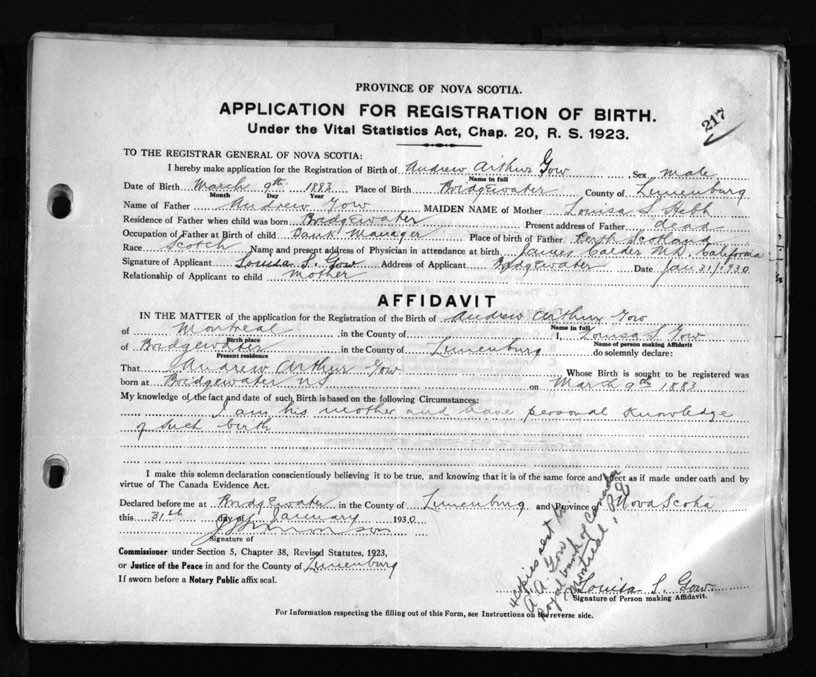 217
PROVINCE OF NOVA SCOTIA.
APPLICATION FOR REGISTRATION OF BIRTH.
Under the Vital Statistics Act, Chap. 20, R. S. 1923.
TO THE REGISTRAR GENERAL OF NOVA SCOTIA:
I hereby make application for the Registration of Birth of Andrew Arthur Gow Sex male
Name in full
Date of Birth March 9th 1883 Place of Birth Bridgewater County of Lunenburg
Month Day Year
Name of Father Andrew Gow MAIDEN NAME of Mother Louisa S. Hebb
Residence of Father when child was born Bridgewater Present address of Father dead
Occupation of Father at Birth of child Bank Manager Place of birth of Father Perth Scotland
Race Scotch Name and present address of Physician in attendance at birth James Calder MD. California
Signature of Applicant Louisa S. Gow Address of Applicant Bridgewater Date Jan 31/1930
Relationship of Applicant to child mother
AFFIDAVIT
IN THE MATTER of the application for the Registration of the Birth of Andrew Arthur Gow
Name in full
of Montreal in the County of I, Louisa S Gow
Birth place Name of person making Affidavit
of Bridgewater in the County of Lunenburg do solemnly declare:
Present residence
That Andrew Arthur Gow Whose Birth is sought to be registered was
born at Bridgewater NS on March 9th 1883
My knowledge of the fact and date of such Birth is based on the following Circumstances:
I am his mother and have personal knowledge
of such birth
I make this solemn declaration conscientiously believing it to be true, and knowing that it is of the same force and effect as if made under oath and by
virtue of The Canada Evidence Act.
Declared before me at Bridgewater in the County of Lunenburg and Province of Nova Scotia
this 31st day of January 1930
Signature of
Commissioner under Section 5, Chapter 38, Revised Statutes, 1923,
or Justice of the Peace in and for the County of Lunenburg
If sworn before a Notary Public affix seal.
copies sent to
A. A. Gow
Royal bank of Canada
Montreal, P.Q.
Louisa S. Gow
Signature of Person making Affidavit.
For Information respecting the filling out of this Form, see Instructions on the reverse side.